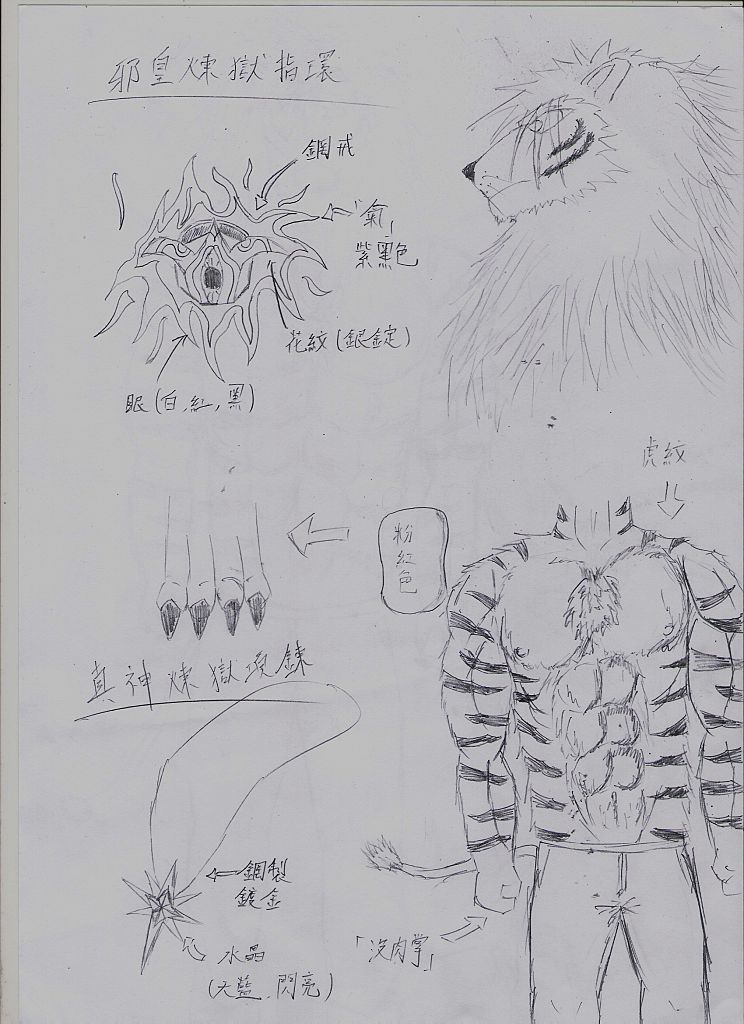 邪皇煉獄指環
鋼戒
「氣」
紫黑色
花紋(銀錠)
眼(白,紅,黑)
虎紋
粉紅色
真神煉獄項鍊
鋼製
鍍金
水晶
(天藍.閃亮)
「沒肉掌」